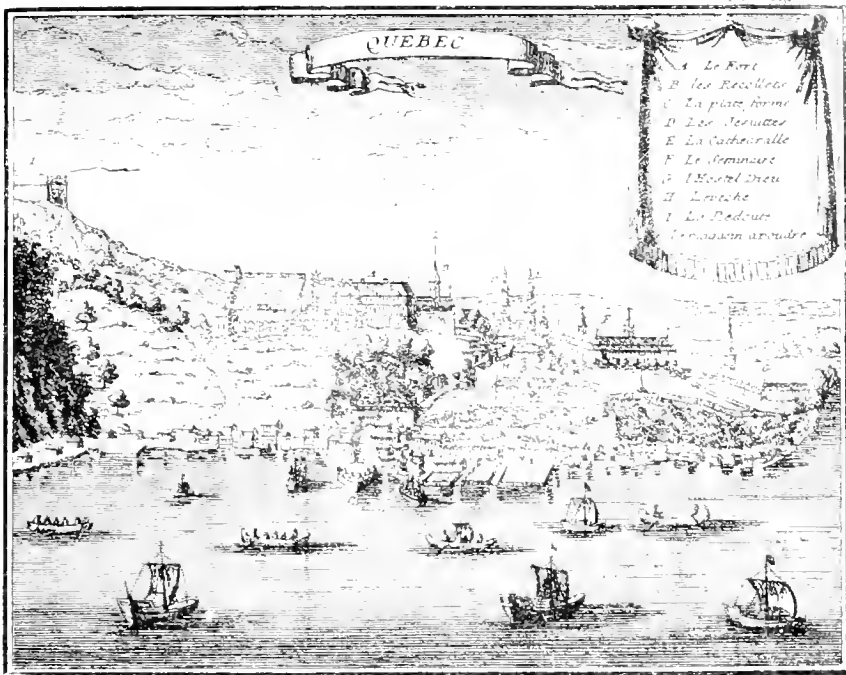 QUEBEC
A Le Fort
B les Recollets
C La plate forme
D Les Jesuittes
E La Cathedralle
F Le Seminaire
G l'Hostel Dieu
H Leveche
I La Redoute
Le magasin a poudre
I
F